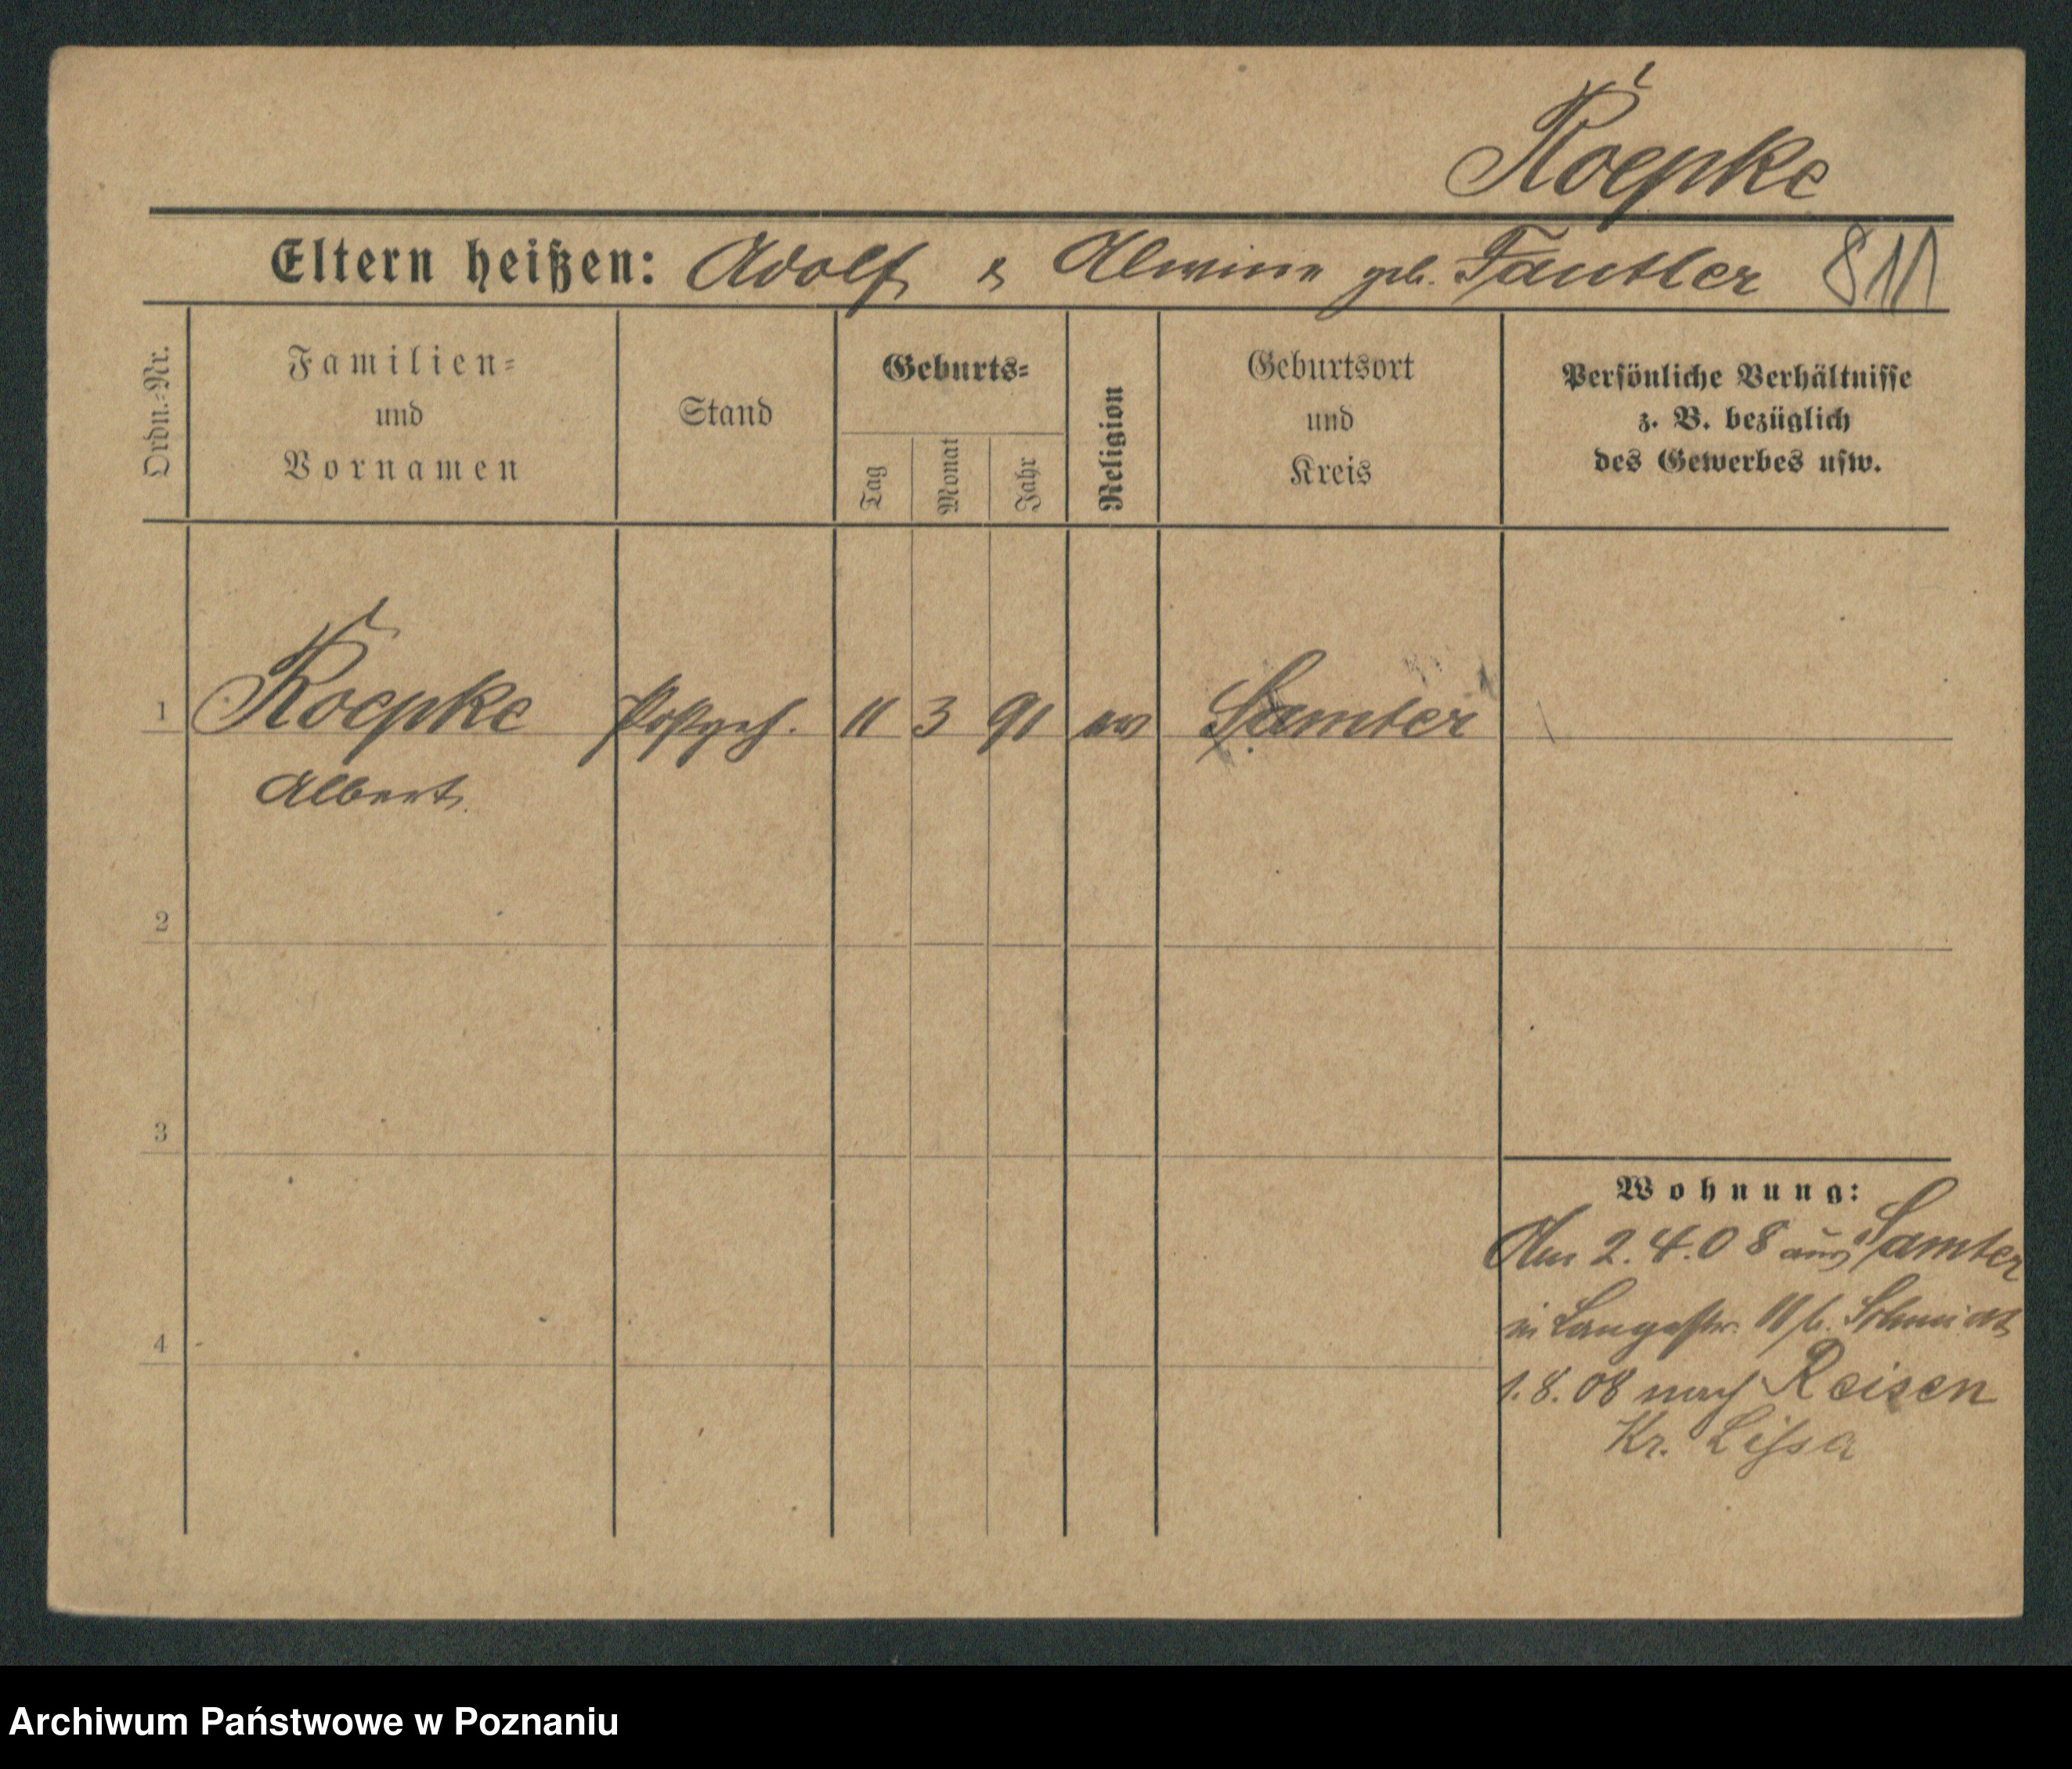 Roepke
Eltern heißen: Adolf & Alwine geb. Fantler 811
Ordn.-Nr.
Familien-
und
Vornamen
Stand
Geburts-
Tag
Monat
Jahr
Religion
Geburtsort
und
Kreis
Persönliche Verhältnisse
z. B. bezüglich
des Gewerbes usw.
1 Roepke Postgeh. 11 3 91 ev Samter
Albert
2
3
4
Wohnung:
Am 2.4.08 aus Samter
in Langestr. 11 b. Schmidt
1.8.08 nach Reisen
Kr. Lissa
Archiwum Państwowe w Poznaniu